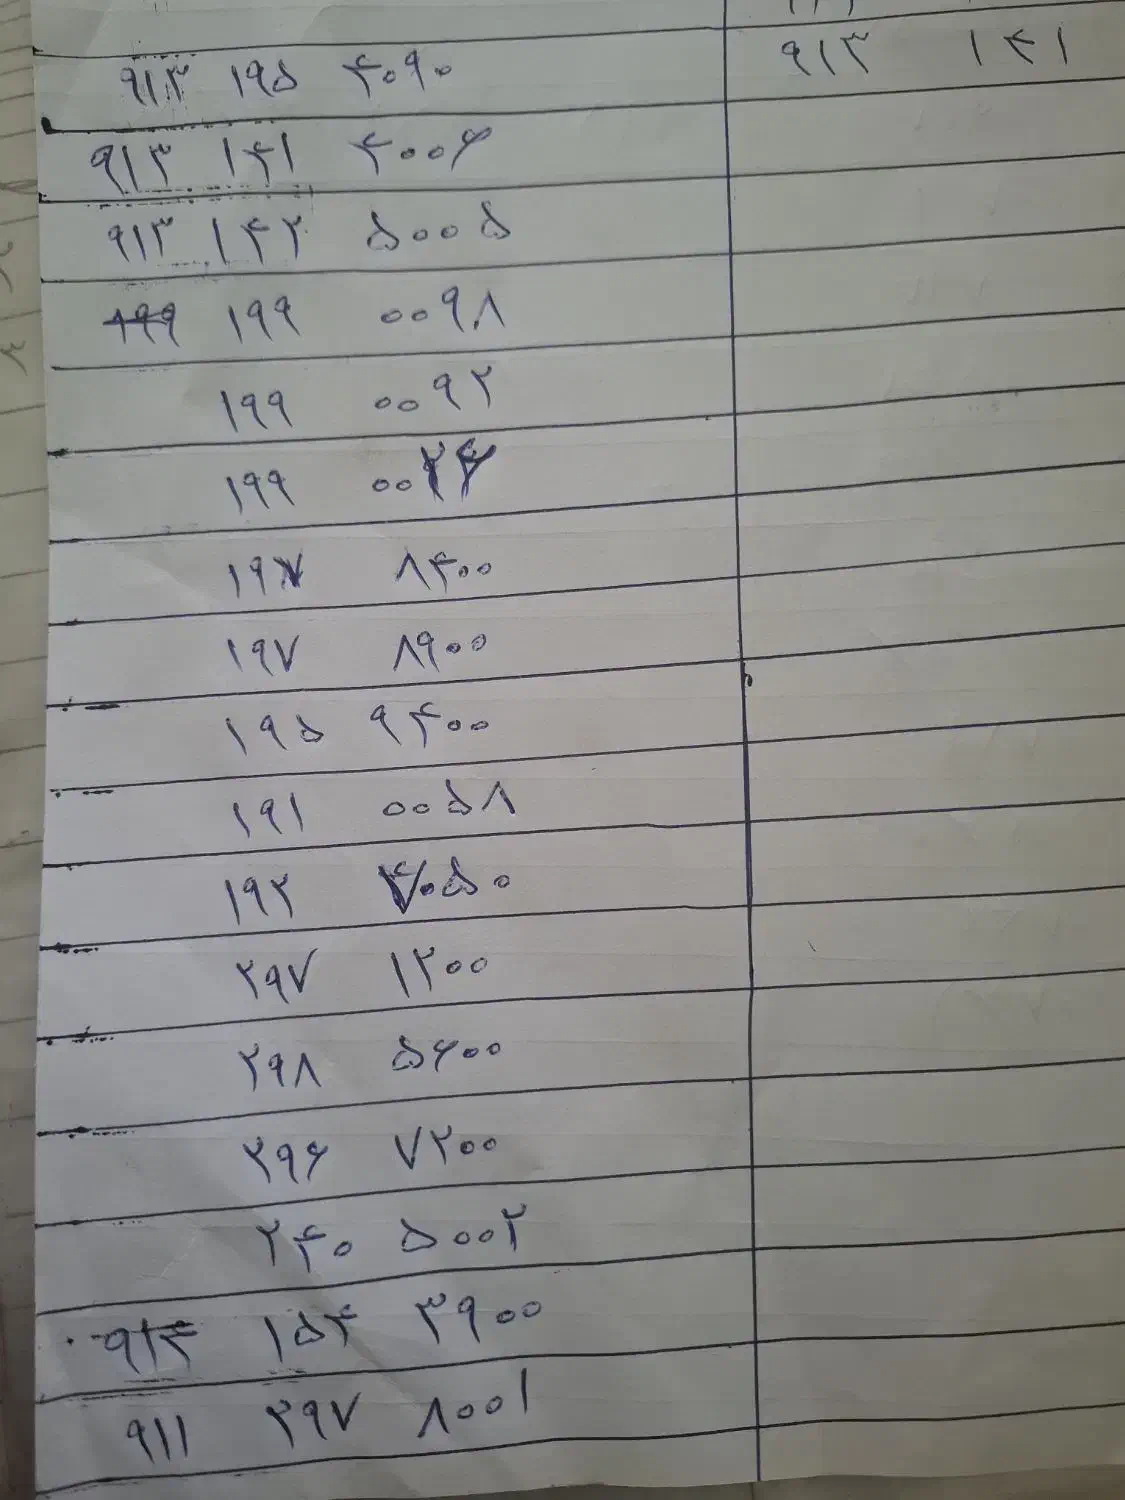 ۹۱۳ ۱۹۵ ۴۰۹۰
۹۱۳ ۱۴۱
۹۱۳ ۱۴۱ ۴۰۰۶
۹۱۳ ۱۴۲ ۵۰۰۵
۱۹۹ ۰۰۹۸
۱۹۹ ۰۰۹۲
۱۹۹
۱۹۷ ۸۴۰۰
۱۹۷ ۸۹۰۰
۱۹۵ ۹۴۰۰
۱۹۱ ۰۰۵۸
۱۹۲
۲۹۷ ۱۲۰۰
۲۹۸ ۵۶۰۰
۲۹۶ ۷۲۰۰
۲۴۰ ۵۰۰۲
۹۱۴ ۱۵۴ ۳۹۰۰
۹۱۱ ۲۹۷ ۸۰۰۱